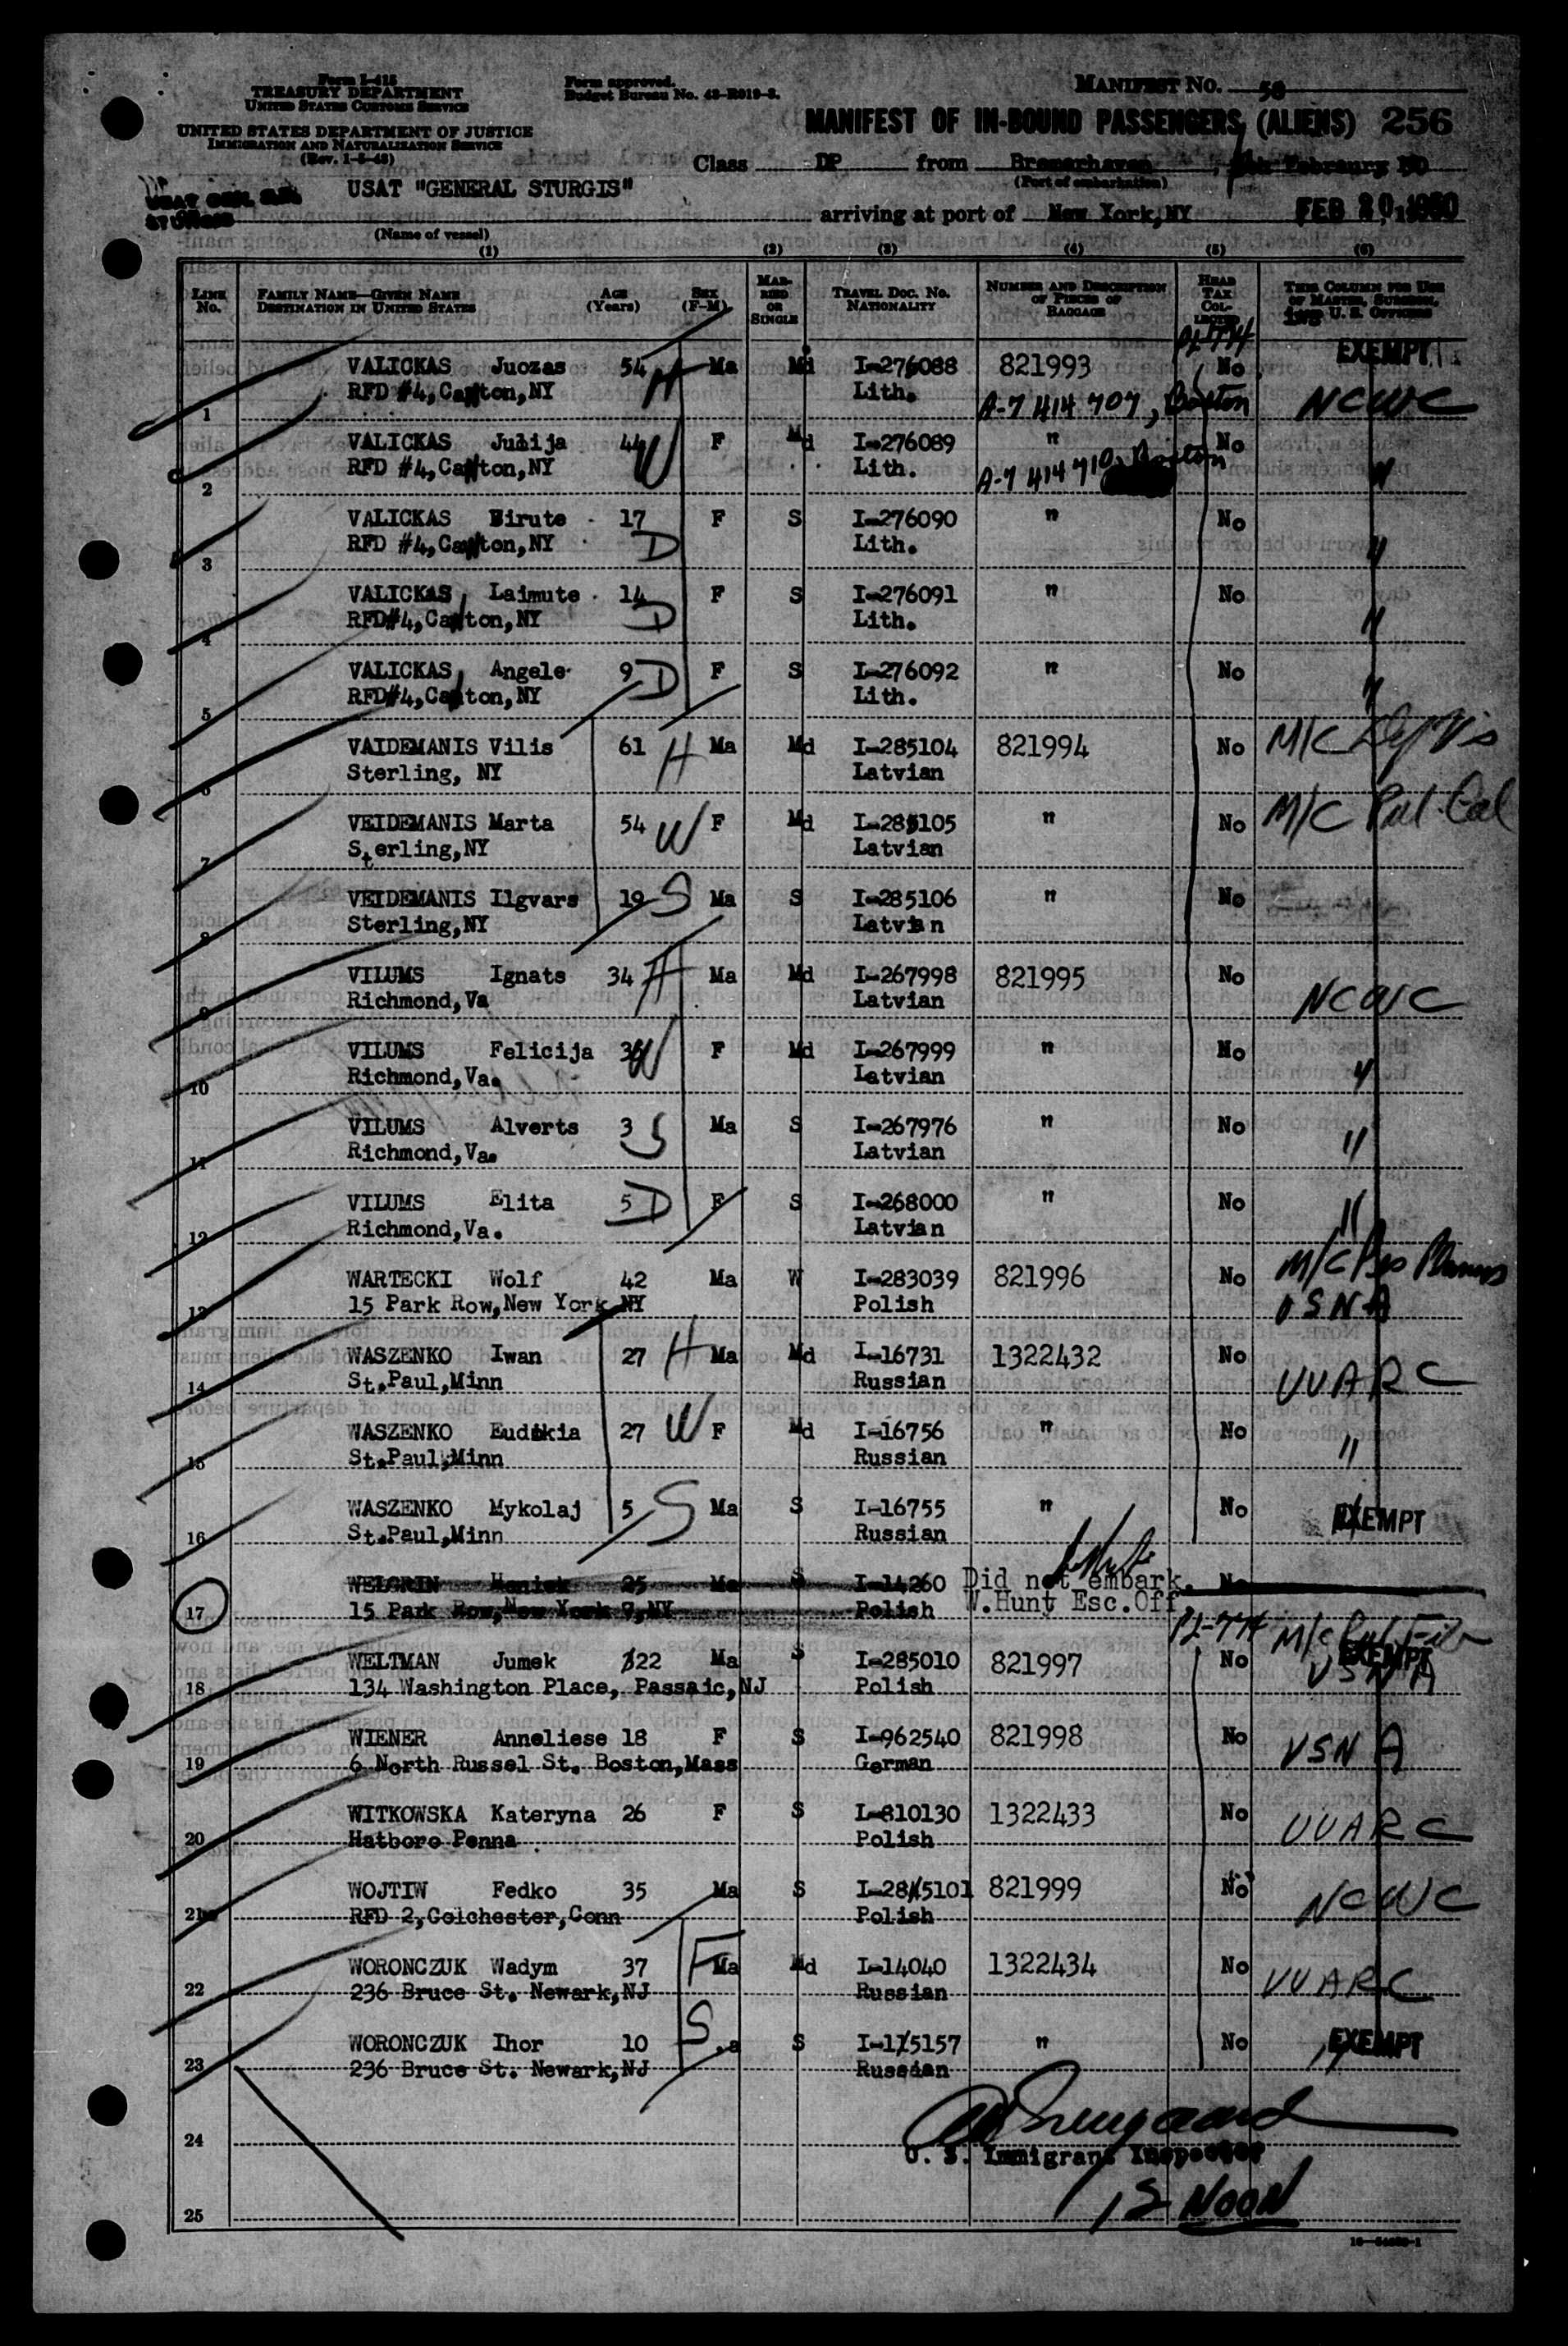 Form I-415
TREASURY DEPARTMENT
UNITED STATES CUSTOMS SERVICE
UNITED STATES DEPARTMENT OF JUSTICE
IMMIGRATION AND NATURALIZATION SERVICE
(Rev. 1-5-48)
Form approved.
Budget Bureau No. 43-R019-3.
MANIFEST No. 58
MANIFEST OF IN-BOUND PASSENGERS (ALIENS) 256
Class DP from Bremerhaven, February 50
(Port of embarkation)
USAT "GENERAL STURGIS"
STURGIS
arriving at port of New York, NY FEB 20 1950
(Name of vessel)
(1) (2) (3) (4) (5) (6)
LINE No. FAMILY NAME—GIVEN NAME DESTINATION IN UNITED STATES AGE (Years) SEX (F-M) MARRIED OR SINGLE TRAVEL DOC. No. NATIONALITY NUMBER AND DESCRIPTION OF PIECES OF BAGGAGE HEAD TAX COLLECTED THIS COLUMN FOR USE OF MASTER, SURGEON, AND U. S. OFFICERS
PL-774 EXEMPT
VALICKAS Juozas 54 H Ma Md I-276088 821993 No
1 RFD #4, Canton, NY Lith. A-7 414 707, Boston NCWC
VALICKAS Julija 44 W F Md I-276089 " No
2 RFD #4, Canton, NY Lith. A-7 414 710, Boston "
VALICKAS Birute 17 F S I-276090 " No
3 RFD #4, Canton, NY D Lith. "
VALICKAS Laimute 14 F S I-276091 " No
4 RFD#4, Canton, NY D Lith. "
VALICKAS Angele 9 D F S I-276092 " No
5 RFD#4, Canton, NY Lith. "
VAIDEMANIS Vilis 61 H Ma Md I-285104 821994 No M/C
6 Sterling, NY Latvian
VEIDEMANIS Marta 54 W F Md I-285105 " No M/C
7 Sterling, NY Latvian
VEIDEMANIS Ilgvars 19 S Ma S I-285106 " No
8 Sterling, NY Latvian
VILUMS Ignats 34 H Ma Md I-267998 821995 No
9 Richmond, Va Latvian NCWC
VILUMS Felicija 36 W F Md I-267999 " No
10 Richmond, Va. Latvian "
VILUMS Alverts 3 S Ma S I-267976 " No
11 Richmond, Va. Latvian "
VILUMS Elita 5 D F S I-268000 " No
12 Richmond, Va. Latvian "
WARTECKI Wolf 42 Ma W I-283039 821996 No M/C
13 15 Park Row, New York NY Polish USNA
WASZENKO Iwan 27 H Ma Md I-16731 1322432 No
14 St. Paul, Minn Russian UUARC
WASZENKO Eudokia 27 W F Md I-16756 " No
15 St. Paul, Minn Russian "
WASZENKO Mykolaj 5 S Ma S I-16755 " No EXEMPT
16 St. Paul, Minn Russian
WELGRIN Heniek 25 Ma S I-14260 Did not embark. No
17 15 Park Row, New York 7, NY Polish W.Hunt Esc.Off
PL-774 M/C EXEMPT
WELTMAN Jumek 22 Ma S I-285010 821997 No USNA
18 134 Washington Place, Passaic, NJ Polish
WIENER Anneliese 18 F S I-962540 821998 No USNA
19 6 North Russel St. Boston, Mass German
WITKOWSKA Kateryna 26 F S I-810130 1322433 No
20 Hatboro Penna. Polish UUARC
WOJTIW Fedko 35 Ma S I-285101 821999 No
21 RFD 2, Colchester, Conn Polish NCWC
WORONCZUK Wadym 37 F Ma Md I-14040 1322434 No
22 236 Bruce St. Newark, NJ Russian UUARC
WORONCZUK Ihor 10 S S I-15157 " No EXEMPT
23 236 Bruce St. Newark, NJ Russian
24
U. S. Immigrant Inspector
12 NOON
25